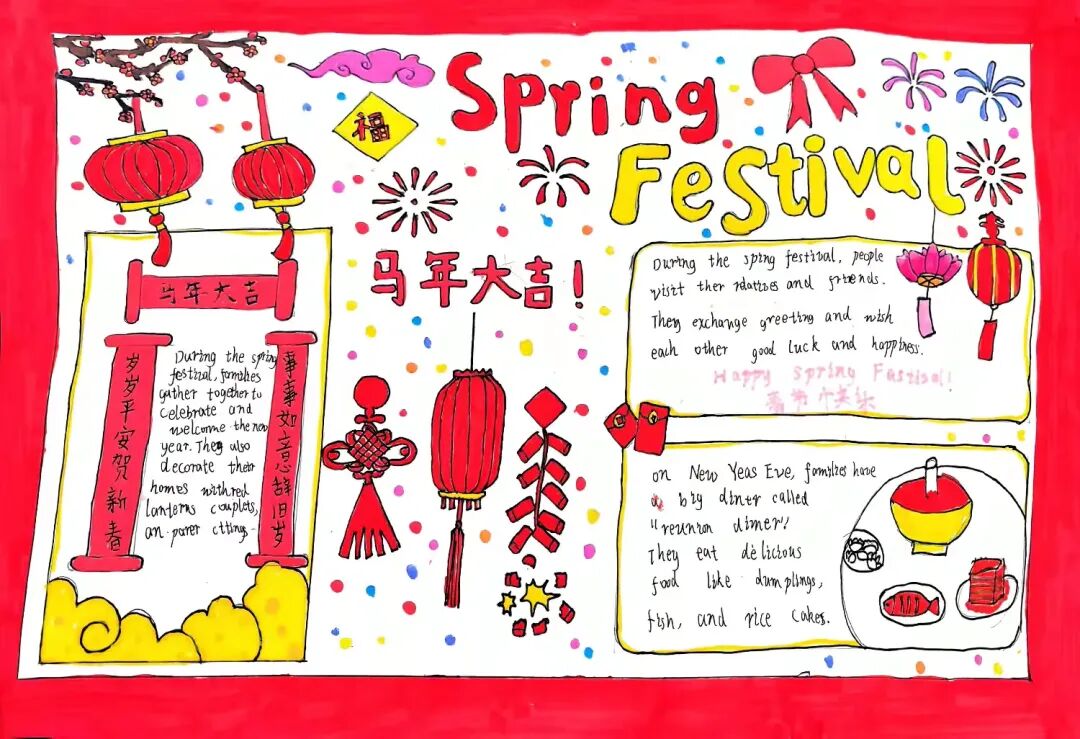 Spring
Festival
福
马年大吉!
马年大吉
岁岁平安贺新春
事事如意辞旧岁
During the spring
festival, families
gather together to
celebrate and
welcome the new
year. They also
decorate their
homes with red
lanterns couplets,
an paper cttings.
During the spring festival, people
visit ther relatives and friends.
They exchange greeting and wish
each other good luck and happiness.
Happy Spring Festival!
On New Yeas Eve, families have
a big diner called
"reunion dinner".
They eat delicious
food like dumplings,
fish, and rice cakes.